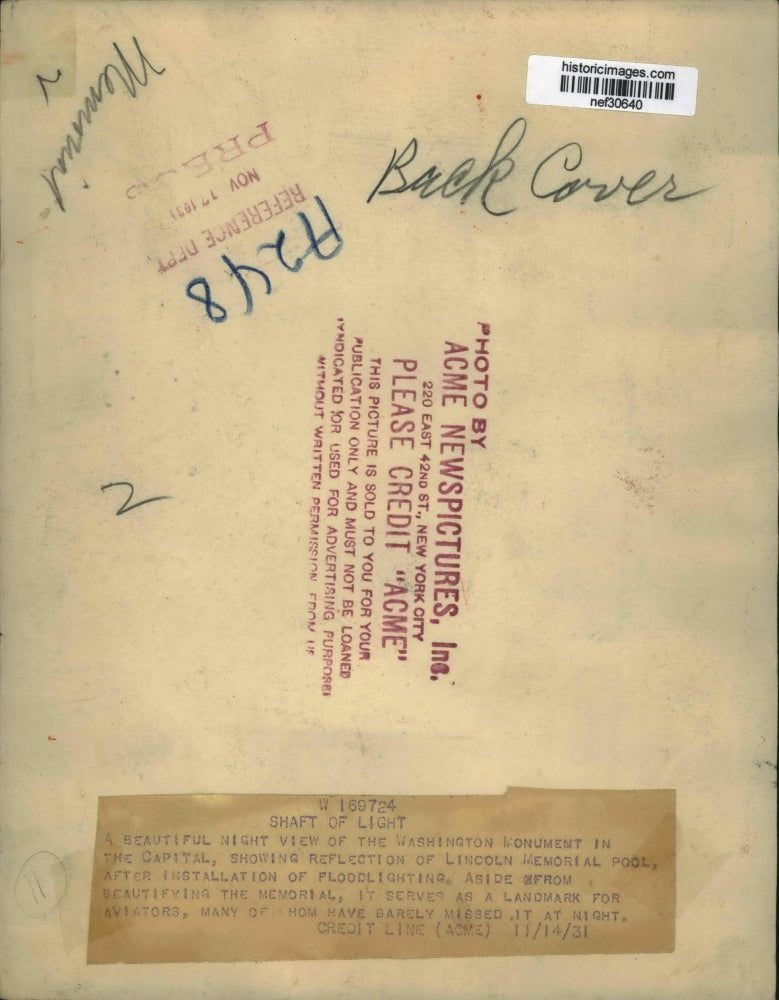 historicimages.com
nef30640
Back Cover
PRESS
NOV 17 1931
REFERENCE DEPT
A2448
2
PHOTO BY
ACME NEWSPICTURES, Inc.
220 EAST 42ND ST., NEW YORK CITY
PLEASE CREDIT "ACME"
THIS PICTURE IS SOLD TO YOU FOR YOUR
PUBLICATION ONLY AND MUST NOT BE LOANED
SYNDICATED OR USED FOR ADVERTISING PURPOSES
WITHOUT WRITTEN PERMISSION FROM US
2
11
W 169724
SHAFT OF LIGHT
A BEAUTIFUL NIGHT VIEW OF THE WASHINGTON MONUMENT IN
THE CAPITAL, SHOWING REFLECTION OF LINCOLN MEMORIAL POOL,
AFTER INSTALLATION OF FLOODLIGHTING. ASIDE FROM
BEAUTIFYING THE MEMORIAL, IT SERVES AS A LANDMARK FOR
AVIATORS, MANY OF HOM HAVE BARELY MISSED IT AT NIGHT.
CREDIT LINE (ACME) 11/14/31